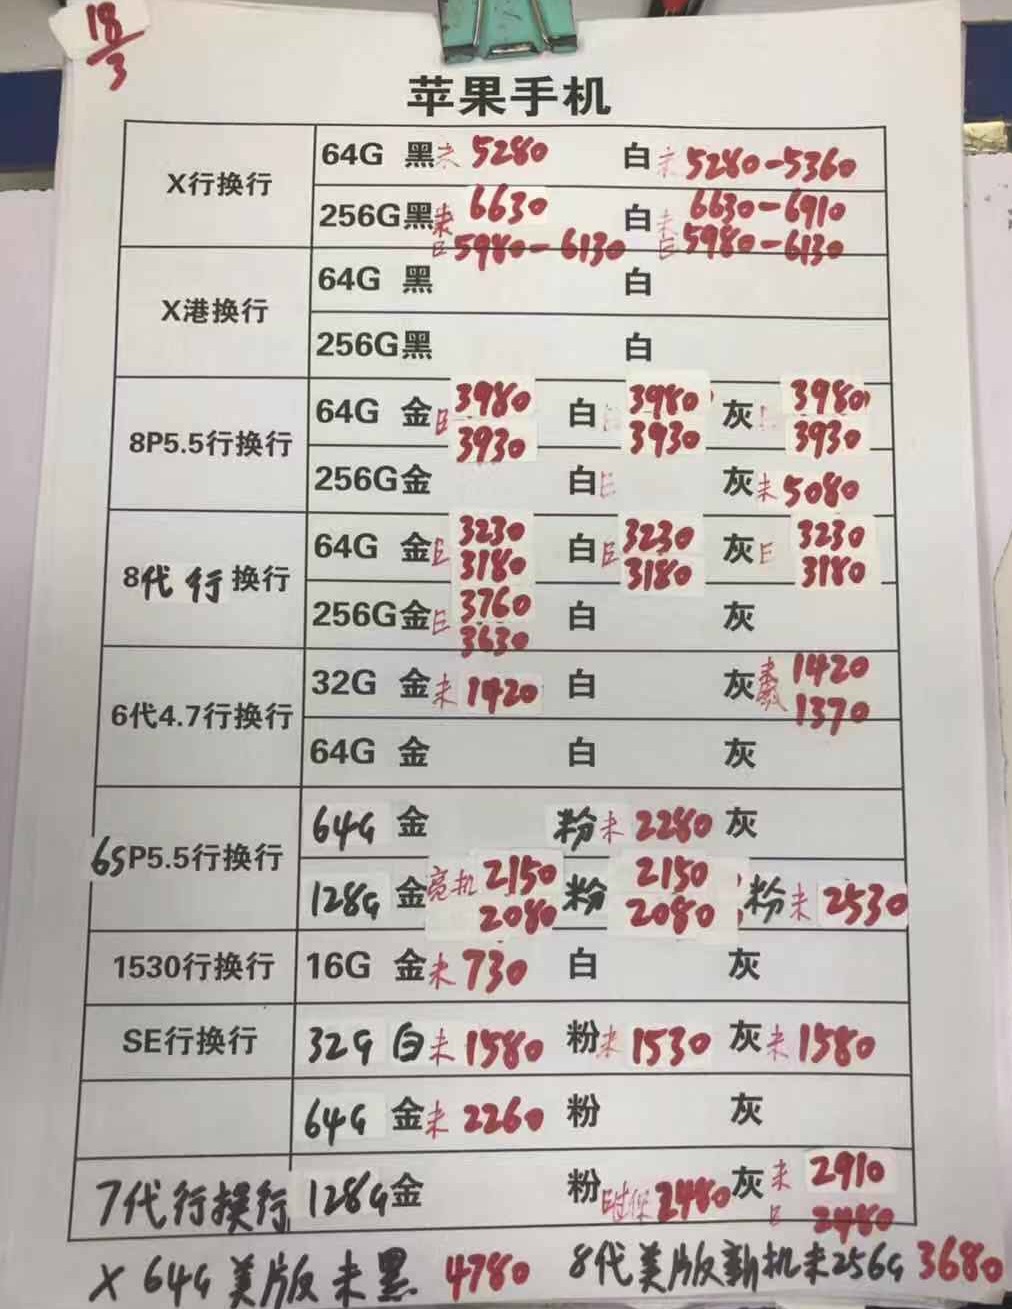 18/3
苹果手机
X行换行 64G 黑 未 5280 白 未 5280-5360
256G黑 未 6630 白 未 6630-6910
日 5980-6130 日 5980-6130
X港换行 64G 黑 白
256G黑 白
8P5.5行换行 64G 金 日 3980 白 日 3980 灰 3980
3930 3930 3930
256G金 白 日 灰 未 5080
8代行换行 64G 金 日 3230 白 日 3230 灰 日 3230
3180 3180 3180
256G金 日 3760 白 灰
3630
6代4.7行换行 32G 金 未 1420 白 灰 未 1420
1370
64G 金 白 灰
6SP5.5行换行 64G 金 粉 未 2280 灰
128G 金 亮机 2150 粉 2150 粉 未 2530
2080 2080
1530行换行 16G 金 未 730 白 灰
SE行换行 32G 白 未 1580 粉 未 1530 灰 未 1580
64G 金 未 2260 粉 灰
7代行换行 128G 金 粉 日过保 2480 灰 未 2910
日 2480
X 64G 美版未黑 4780 8代美版新机未256G 3680